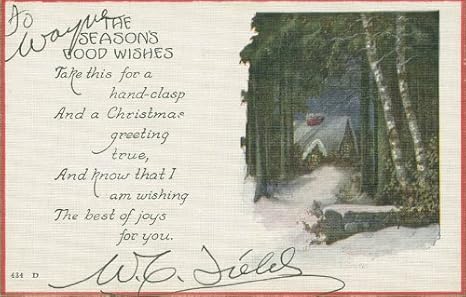 To
Wayne
THE
SEASON'S
GOOD WISHES
Take this for a
hand-clasp
And a Christmas
greeting
true,
And know that I
am wishing
The best of joys
for you.
W.C. Fields
434 D